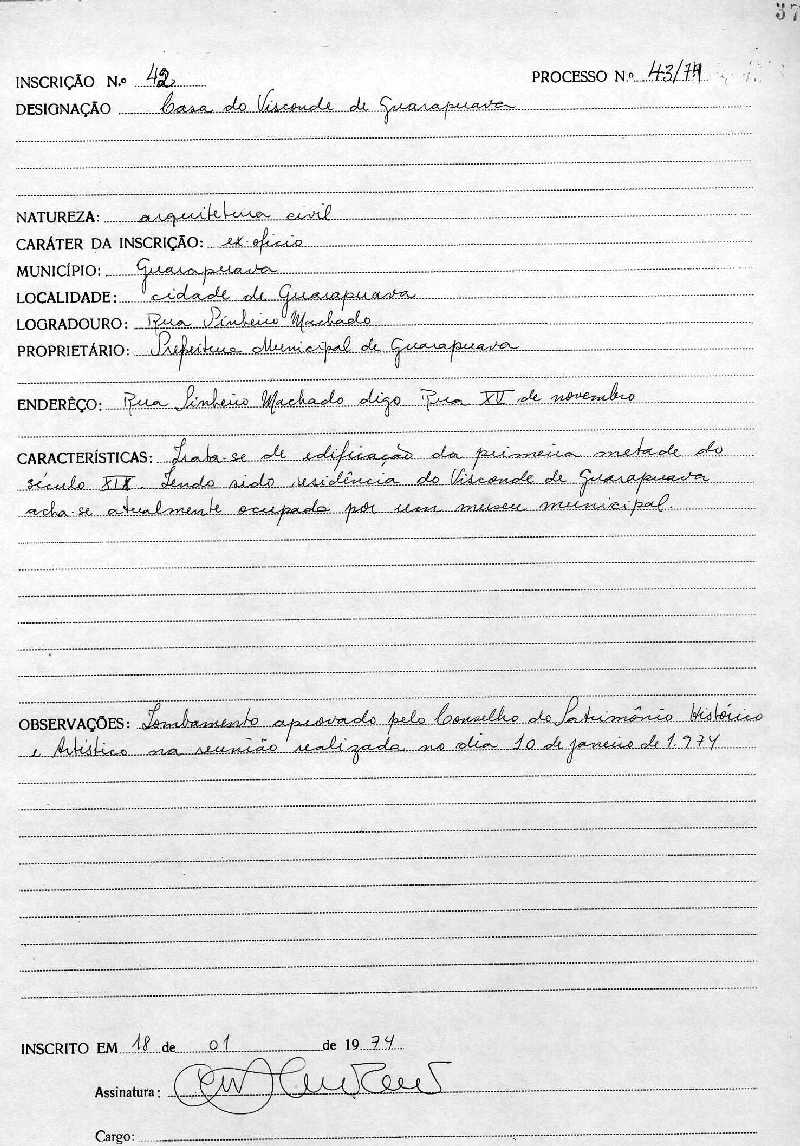 37
INSCRIÇÃO N.º 42 PROCESSO N.º 43/74
DESIGNAÇÃO Casa do Visconde de Guarapuava
NATUREZA: arquitetura civil
CARÁTER DA INSCRIÇÃO: ex-ofício
MUNICÍPIO: Guarapuava
LOCALIDADE: cidade de Guarapuava
LOGRADOURO: Rua Pinheiro Machado
PROPRIETÁRIO: Prefeitura Municipal de Guarapuava
ENDERÊÇO: Rua Pinheiro Machado digo Rua XV de novembro
CARACTERÍSTICAS: Trata-se de edificação da primeira metade do
século XIX. Tendo sido residência do Visconde de Guarapuava
acha-se atualmente ocupada por um museu municipal.
OBSERVAÇÕES: Tombamento aprovado pelo Conselho do Patrimônio Histórico
e Artístico na reunião realizada no dia 10 de janeiro de 1.974
INSCRITO EM 18 de 01 de 1974
Assinatura:
Cargo: